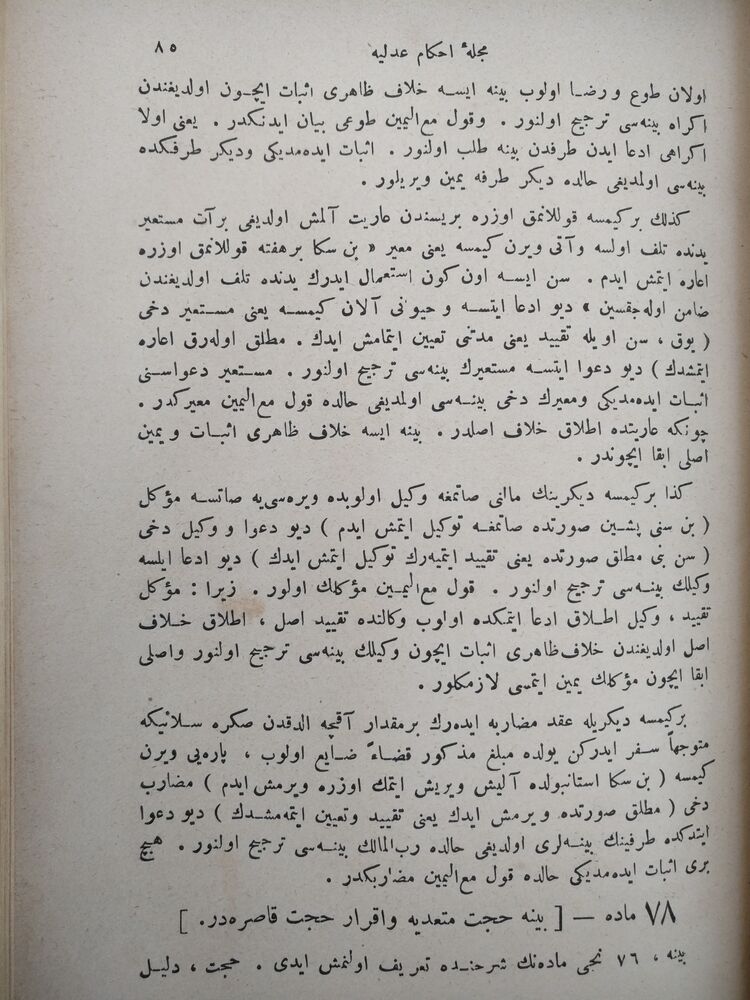 مجلهٔ احکام عدلیه ٨٥
اولان طوع و رضا اولوب بینه ایسه خلاف ظاهری اثبات ایچون اولدیغندن
اکراه بینه‌سی ترجیح اولنور . وقول مع‌الیمین طوعی بیان ایدنکدر . یعنی اولا
اکراهی ادعا ایدن طرفدن بینه طلب اولنور . اثبات ایده‌مدیکی ودیکر طرفکده
بینه‌سی اولمدیغی حالده دیکر طرفه یمین ویریلور .
کذلك برکیمسه قوللانمق اوزره بریسندن عاریت آلمش اولدیغی برآت مستعیر
یدنده تلف اولسه وآتی ویرن کیمسه یعنی معیر « بن سکا برهفته قوللانمق اوزره
اعاره ایتمش ایدم . سن ایسه اون کون استعمال ایدرك یدنده تلف اولدیغندن
ضامن اوله‌جقسین » دیو ادعا ایتسه و حیوانی آلان کیمسه یعنی مستعیر دخی
( یوق ، سن اویله تقیید یعنی مدتنی تعیین ایتمامش ایدك . مطلق اوله‌رق اعاره
ایتمشدك ) دیو دعوا ایتسه مستعیرك بینه‌سی ترجیح اولنور . مستعیر دعواسنی
اثبات ایده‌مدیکی ومعیرك دخی بینه‌سی اولمدیغی حالده قول مع‌الیمین معیرکدر .
چونکه عاریتده اطلاق خلاف اصلدر . بینه ایسه خلاف ظاهری اثبات و یمین
اصلی ابقا ایچوندر .
کذا برکیمسه دیکرینك مالنی صاتمغه وکیل اولوبده ویره‌سی‌یه صاتسه مؤکل
( بن سنی پشین صورتده صاتمغه توکیل ایتمش ایدم ) دیو دعوا و وکیل دخی
( سن بنی مطلق صورتده یعنی تقیید ایتمیه‌رك توکیل ایتمش ایدك ) دیو ادعا ایلسه
وکیلك بینه‌سی ترجیح اولنور . قول مع‌الیمین مؤکلك اولور . زیرا : مؤکل
تقیید ، وکیل اطلاق ادعا ایتمکده اولوب وکالتده تقیید اصل ، اطلاق خلاف
اصل اولدیغندن خلاف ظاهری اثبات ایچون وکیلك بینه‌سی ترجیح اولنور واصلی
ابقا ایچون مؤکلك یمین ایتمسی لازمکلور .
برکیمسه دیکریله عقد مضاربه ایده‌رك برمقدار آقچه الدقدن صکره سلانیکه
متوجهاً سفر ایدرکن یولده مبلغ مذکور قضاءً ضایع اولوب ، پاره‌یی ویرن
کیمسه ( بن سکا استانبولده آلیش ویریش ایتمك اوزره ویرمش ایدم ) مضارب
دخی ( مطلق صورتده ویرمش ایدك یعنی تقیید وتعیین ایتمه‌مشدك ) دیو دعوا
ایتدکده طرفینك بینه‌لری اولدیغی حالده رب‌المالك بینه‌سی ترجیح اولنور . هیچ
بری اثبات ایده‌مدیکی حالده قول مع‌الیمین مضاربکدر .
٧٨ ماده — [ بینه حجت متعدیه واقرار حجت قاصره‌در. ]
بینه ، ٧٦ نجی ماده‌نك شرحنده تعریف اولنمش ایدی . حجت ، دلیل